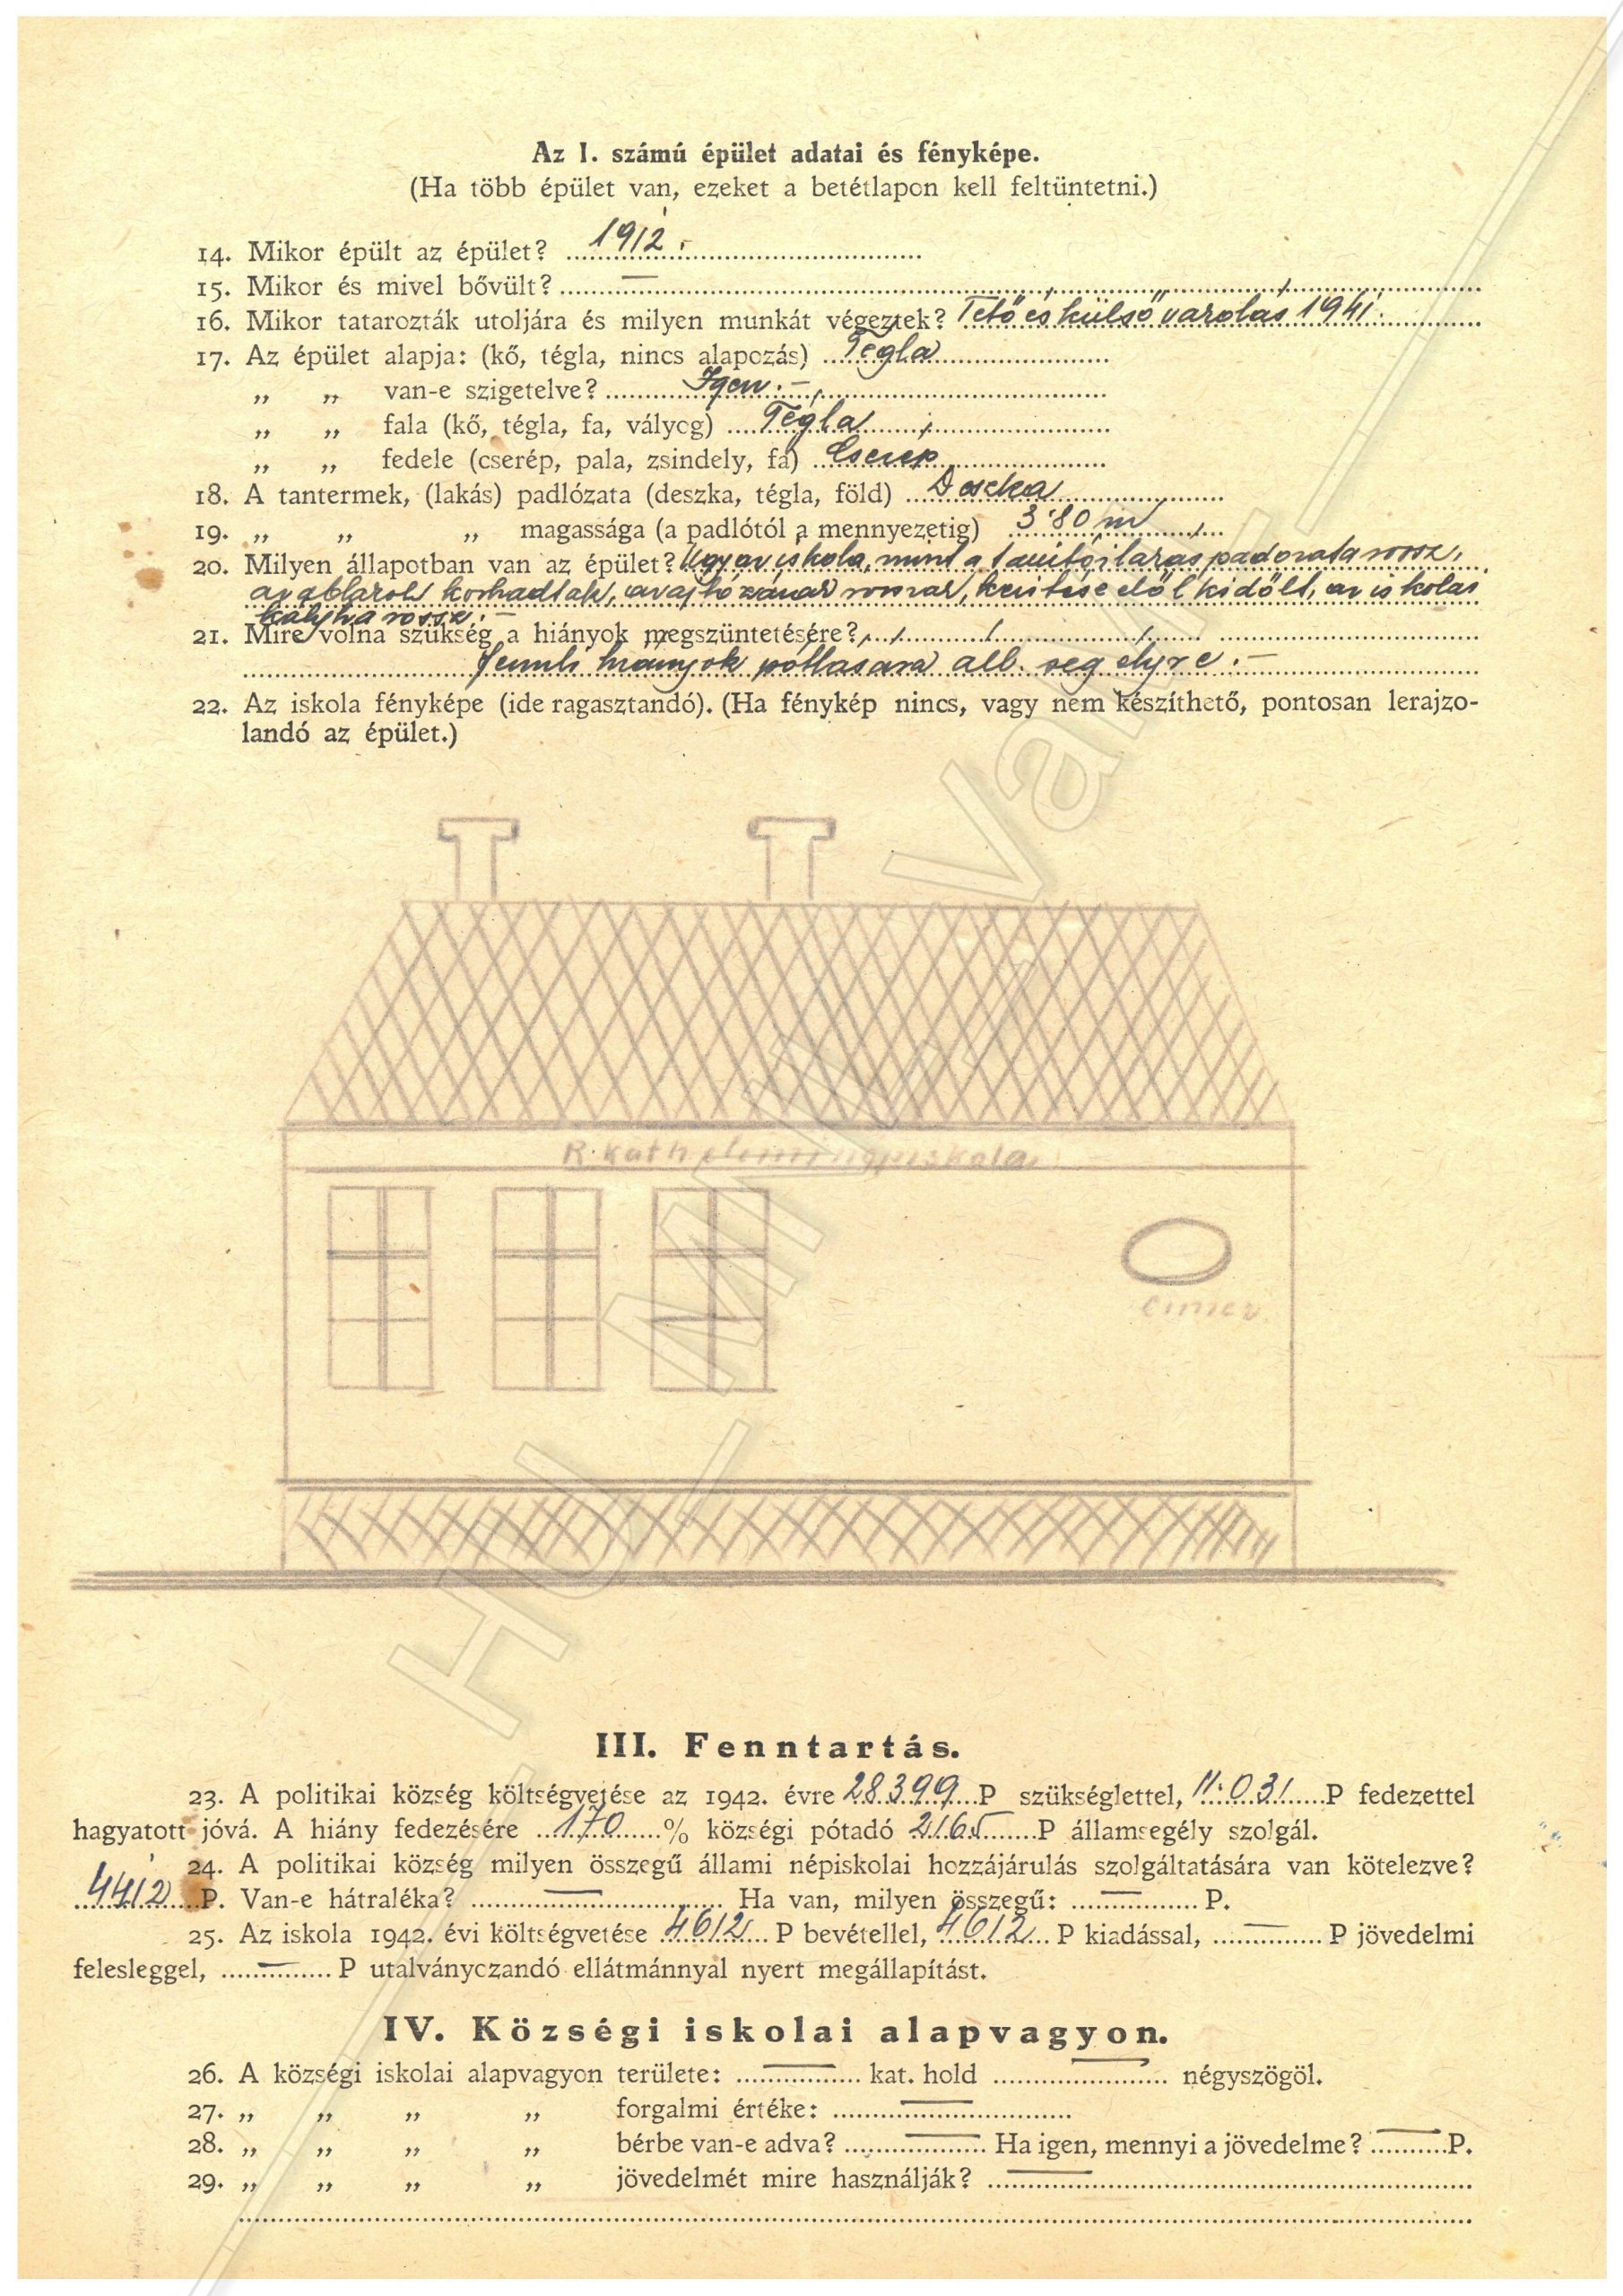 Az I. számú épület adatai és fényképe.
(Ha több épület van, ezeket a betétlapon kell feltüntetni.)
14. Mikor épült az épület? 1912.
15. Mikor és mivel bővült? —
16. Mikor tatarozták utoljára és milyen munkát végeztek? Tető és külső vakolás 1941.
17. Az épület alapja: (kő, tégla, nincs alapozás) Tégla
„ „ van-e szigetelve? Igen. —
„ „ fala (kő, tégla, fa, vályog) Tégla
„ „ fedele (cserép, pala, zsindely, fa) Cserép
18. A tantermek, (lakás) padlózata (deszka, tégla, föld) Deszka
19. „ „ „ magassága (a padlótól a mennyezetig) 3'80 m
20. Milyen állapotban van az épület? Ugy az iskola, mint a tanítói lakás padozata rossz,
az ablakok korhadtak, az ajtó zárak rosszak, kerítése elől kidőlt, az iskolai
kályha rossz. —
21. Mire volna szükség a hiányok megszüntetésére?
Fennti hiányok pótlására áll. segélyre. —
22. Az iskola fényképe (ide ragasztandó). (Ha fénykép nincs, vagy nem készíthető, pontosan lerajzo-
landó az épület.)
R. kath elemi népiskola
címer
III. Fenntartás.
23. A politikai község költségvetése az 1942. évre 28.399 P szükséglettel, 11.031 P fedezettel
hagyatott jóvá. A hiány fedezésére 170 % községi pótadó 2165 P államsegély szolgál.
24. A politikai község milyen összegű állami népiskolai hozzájárulás szolgáltatására van kötelezve?
4412 P. Van-e hátraléka? — Ha van, milyen összegű: — P.
25. Az iskola 1942. évi költségvetése 4612 P bevétellel, 4612 P kiadással, — P jövedelmi
felesleggel, — P utalványozandó ellátmánnyal nyert megállapítást.
IV. Községi iskolai alapvagyon.
26. A községi iskolai alapvagyon területe: — kat. hold — négyszögöl.
27. „ „ „ „ forgalmi értéke: —
28. „ „ „ „ bérbe van-e adva? — Ha igen, mennyi a jövedelme? — P.
29. „ „ „ „ jövedelmét mire használják? —